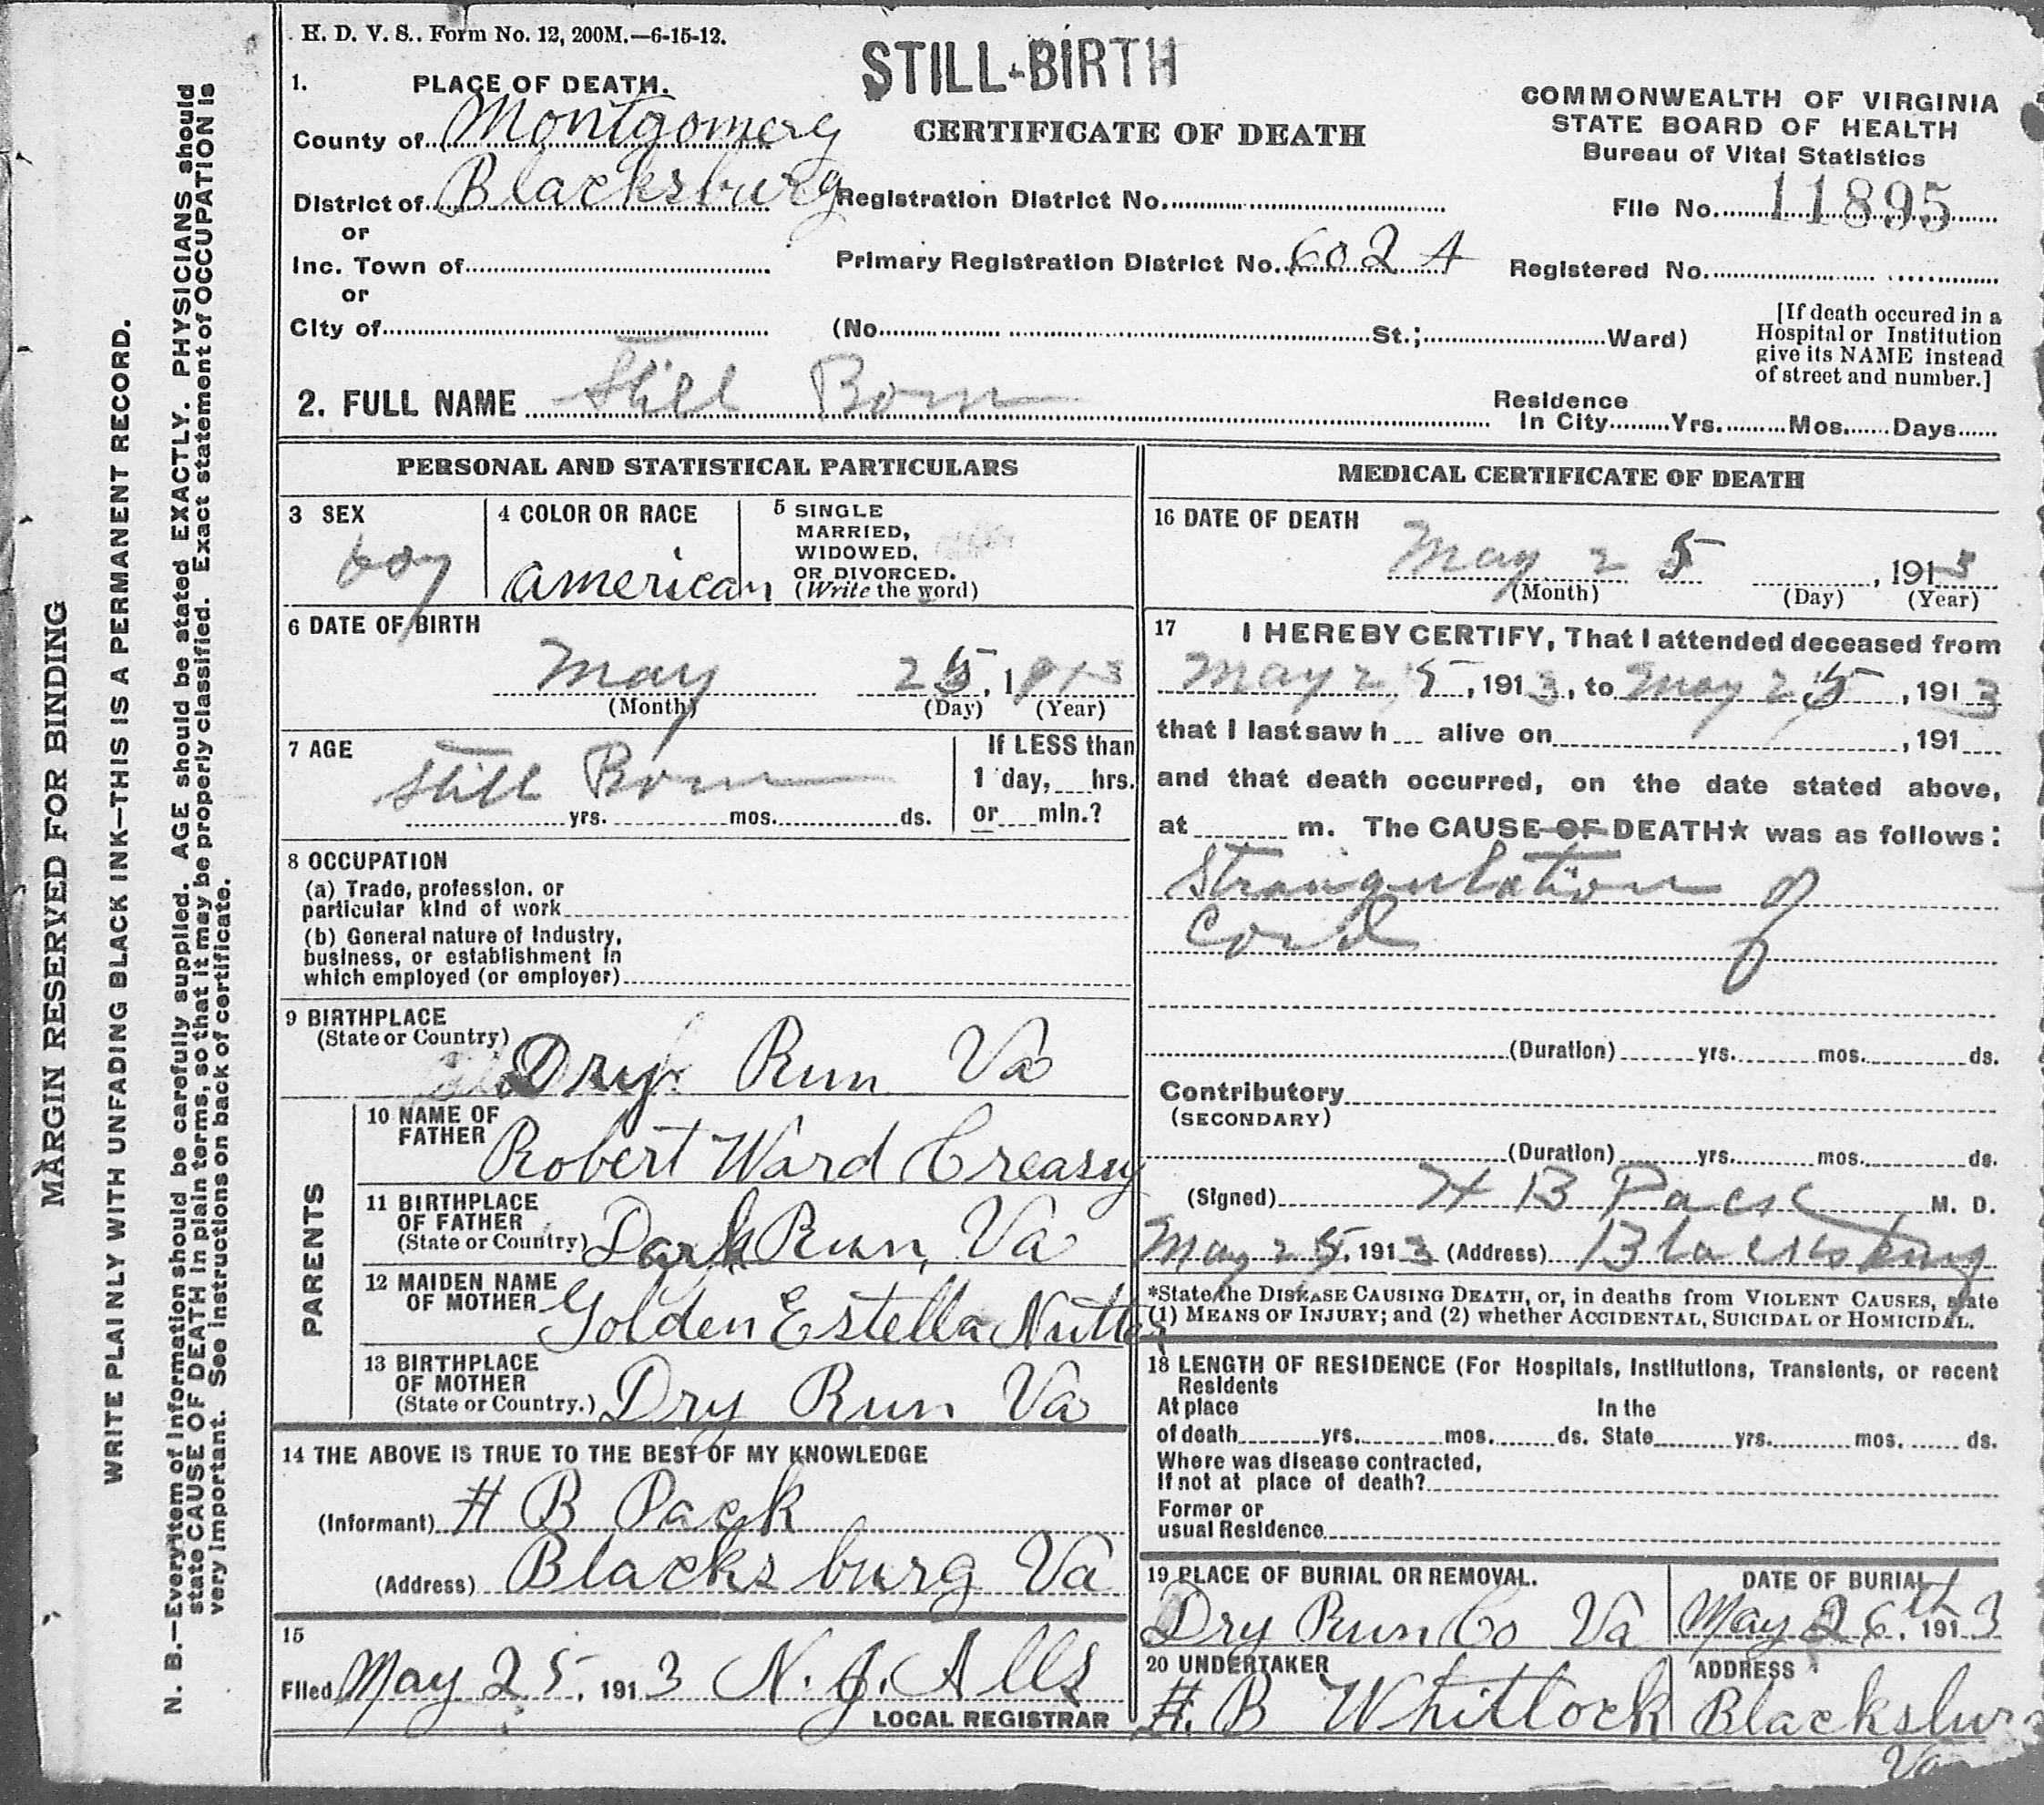 H. D. V. S.. Form No. 12, 200M.—6-15-12.
STILL-BIRTH
1. PLACE OF DEATH.
County of Montgomery
CERTIFICATE OF DEATH
COMMONWEALTH OF VIRGINIA
STATE BOARD OF HEALTH
Bureau of Vital Statistics
District of Blacksburg
Registration District No.
File No. 11895
or
Inc. Town of
Primary Registration District No. 602 A
Registered No.
or
City of
(No. St.; Ward)
[If death occured in a
Hospital or Institution
give its NAME instead
of street and number.]
2. FULL NAME Still Born
Residence
In City Yrs. Mos. Days
PERSONAL AND STATISTICAL PARTICULARS
3 SEX
boy
4 COLOR OR RACE
american
5 SINGLE
MARRIED,
WIDOWED,
OR DIVORCED.
(Write the word)
6 DATE OF BIRTH
May 25, 1913
(Month) (Day) (Year)
7 AGE
Still Born
yrs. mos. ds.
If LESS than
1 day, hrs.
or min.?
8 OCCUPATION
(a) Trade, profession, or
particular kind of work
(b) General nature of Industry,
business, or establishment in
which employed (or employer)
9 BIRTHPLACE
(State or Country)
Dry Run Va
PARENTS
10 NAME OF
FATHER
Robert Ward Creasy
11 BIRTHPLACE
OF FATHER
(State or Country) Dark Run, Va
12 MAIDEN NAME
OF MOTHER
Golden Estella Nutter
13 BIRTHPLACE
OF MOTHER
(State or Country.) Dry Run Va
14 THE ABOVE IS TRUE TO THE BEST OF MY KNOWLEDGE
(Informant) H B Pack
(Address) Blacksburg Va
15
Filed May 25, 1913 N. J. Alls
LOCAL REGISTRAR
MEDICAL CERTIFICATE OF DEATH
16 DATE OF DEATH
May 25, 1913
(Month) (Day) (Year)
17 I HEREBY CERTIFY, That I attended deceased from
May 25, 1913, to May 25, 1913
that I last saw h alive on , 191
and that death occurred, on the date stated above,
at m. The CAUSE OF DEATH★ was as follows:
Strangulation of
Cord
(Duration) yrs. mos. ds.
Contributory
(SECONDARY)
(Duration) yrs. mos. ds.
(Signed) H B Pack M. D.
May 25, 1913 (Address) Blacksburg
*State the DISEASE CAUSING DEATH, or, in deaths from VIOLENT CAUSES, state
(1) MEANS OF INJURY; and (2) whether ACCIDENTAL, SUICIDAL or HOMICIDAL.
18 LENGTH OF RESIDENCE (For Hospitals, Institutions, Transients, or recent
Residents
At place In the
of death yrs. mos. ds. State yrs. mos. ds.
Where was disease contracted,
If not at place of death?
Former or
usual Residence
19 PLACE OF BURIAL OR REMOVAL.
Dry Run Co Va
DATE OF BURIAL
May 26th, 1913
20 UNDERTAKER
H. B Whitlock
ADDRESS
Blacksburg
Va
MARGIN RESERVED FOR BINDING
WRITE PLAINLY WITH UNFADING BLACK INK—THIS IS A PERMANENT RECORD.
N. B.—Every item of information should be carefully supplied. AGE should be stated EXACTLY. PHYSICIANS should
state CAUSE OF DEATH in plain terms, so that it may be properly classified. Exact statement of OCCUPATION is
very important. See instructions on back of certificate.